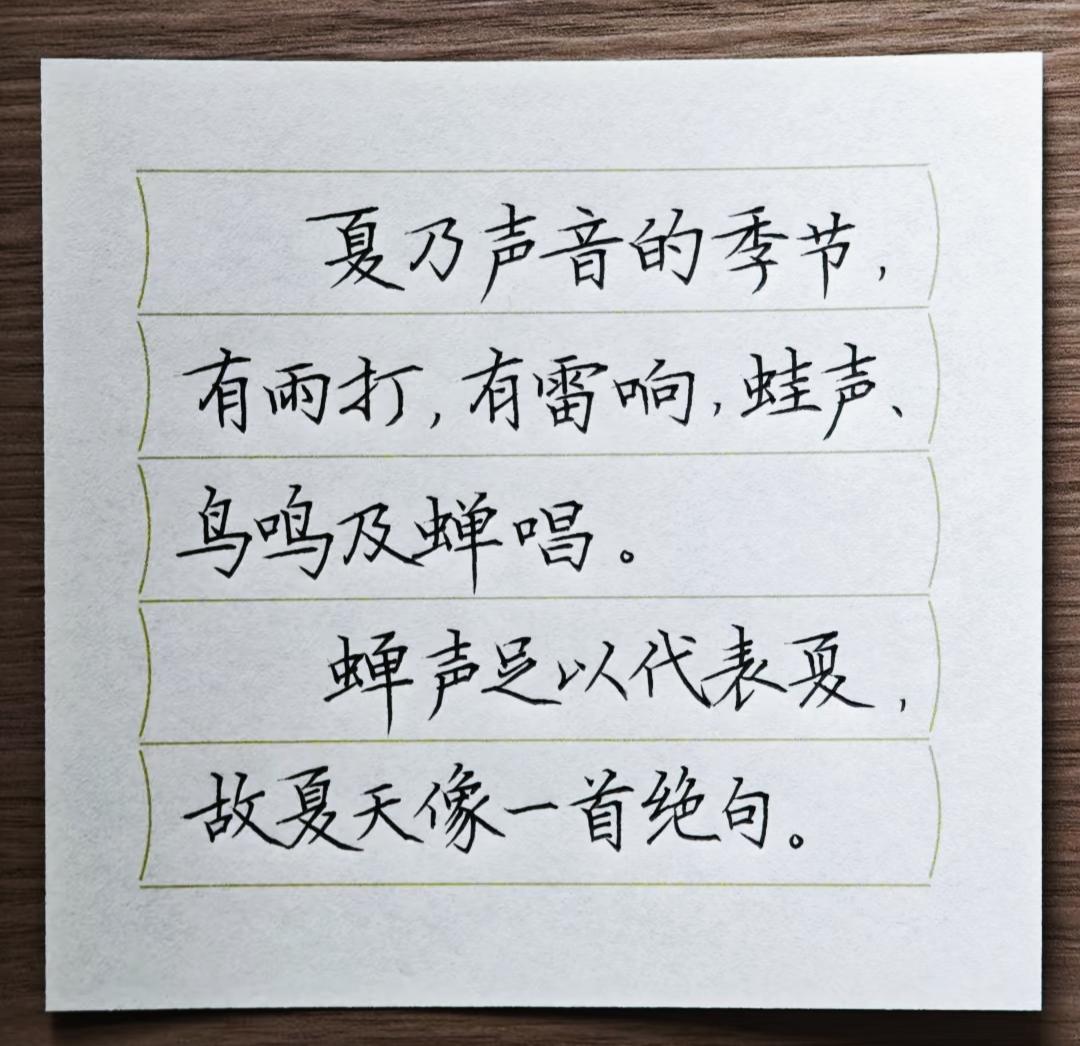 夏乃声音的季节，
有雨打，有雷响，蛙声、
鸟鸣及蝉唱。
蝉声足以代表夏，
故夏天像一首绝句。